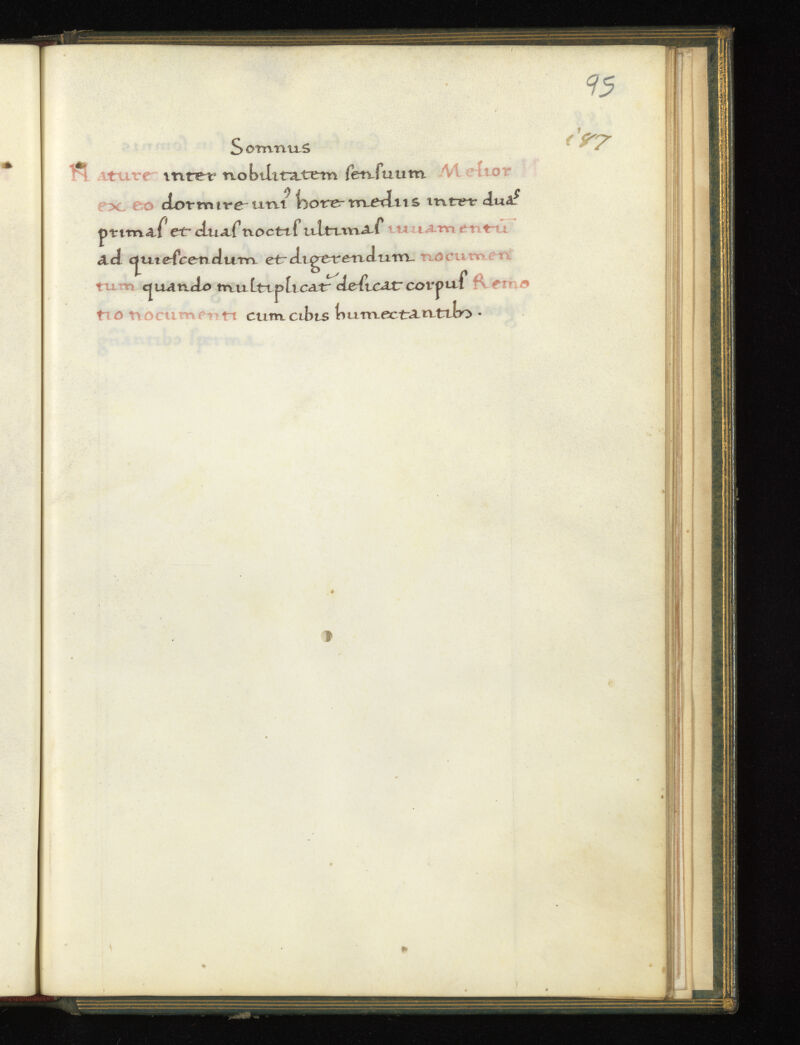 95
187
Somnus
Nature inter nobilitatem sensuum Melior
ex eo dormire uniꝰ hore mediis inter duas
primas et duas noctis ultimas iuuamentū
ad quiescendum et digerendum nocumen
tum quando multiplicat᷑ desicat corpus Remo
tio nocumenti cum cibis humectantibꝫ .